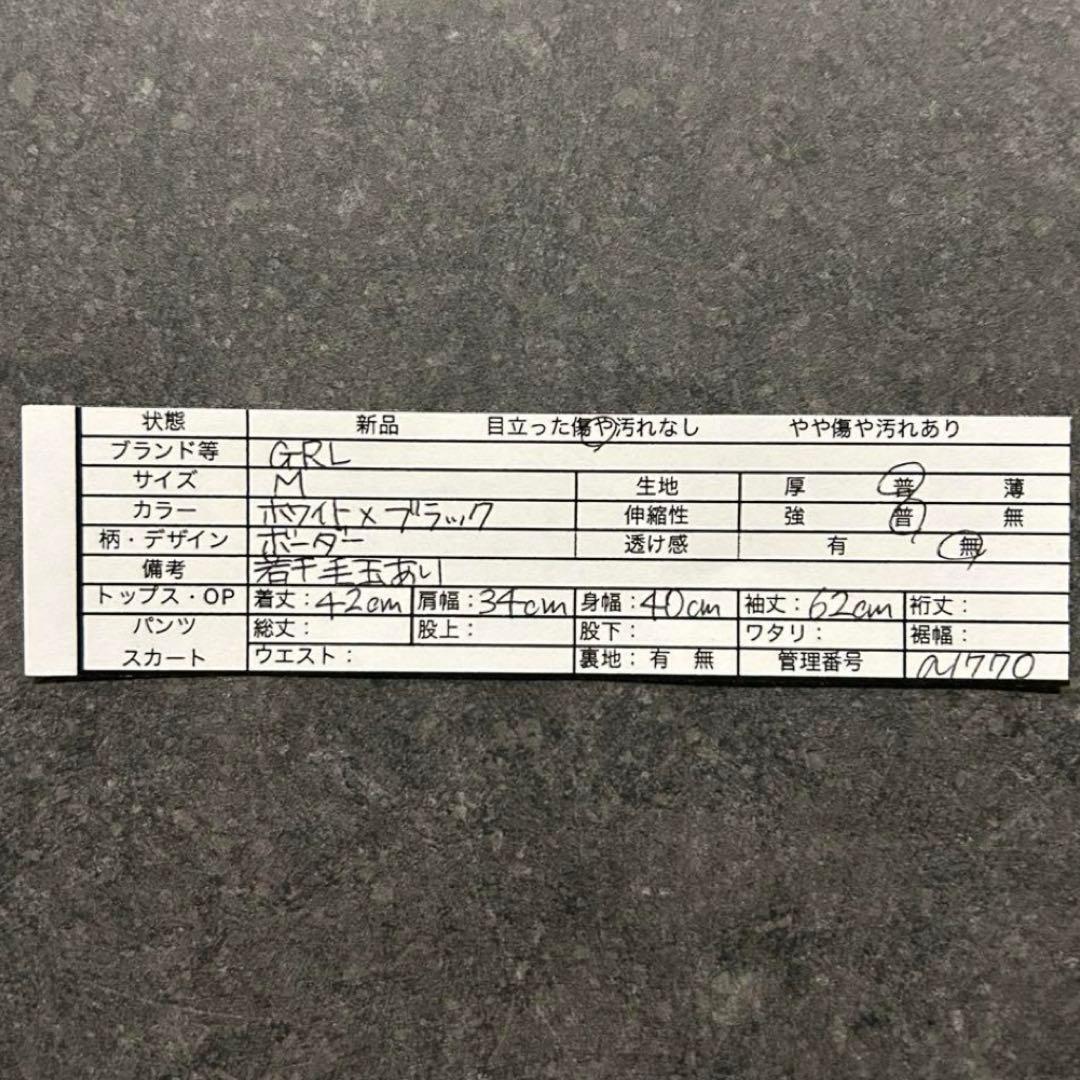 状態 新品 目立った傷や汚れなし やや傷や汚れあり
ブランド等 GRL
サイズ M 生地 厚 普 薄
カラー ホワイト×ブラック 伸縮性 強 普 無
柄・デザイン ボーダー 透け感 有 無
備考 若干毛玉あり
トップス・OP 着丈:42cm 肩幅:34cm 身幅:40cm 袖丈:62cm 裄丈:
パンツ 総丈: 股上: 股下: ワタリ: 裾幅:
スカート ウエスト: 裏地:有 無 管理番号 N1770